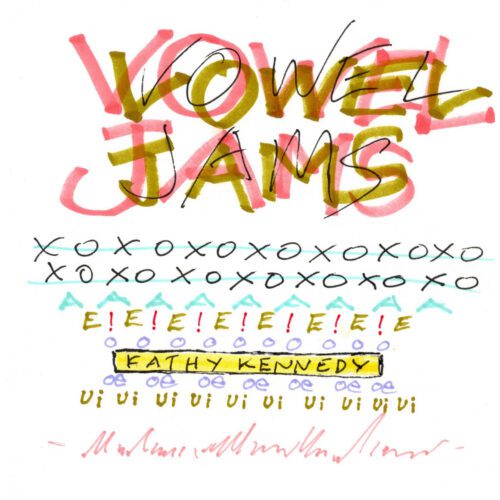 VOWEL
JAMS
X O X O X O X O X O X O X O X O
X O X O X O X O X O X O X O
A A A A A A A A A A
E ! E ! E ! E ! E ! E ! E ! E
o o o o o o o o o
KATHY KENNEDY
oe oe oe oe oe oe oe
Ui Ui Ui Ui Ui Ui Ui Ui Ui Ui